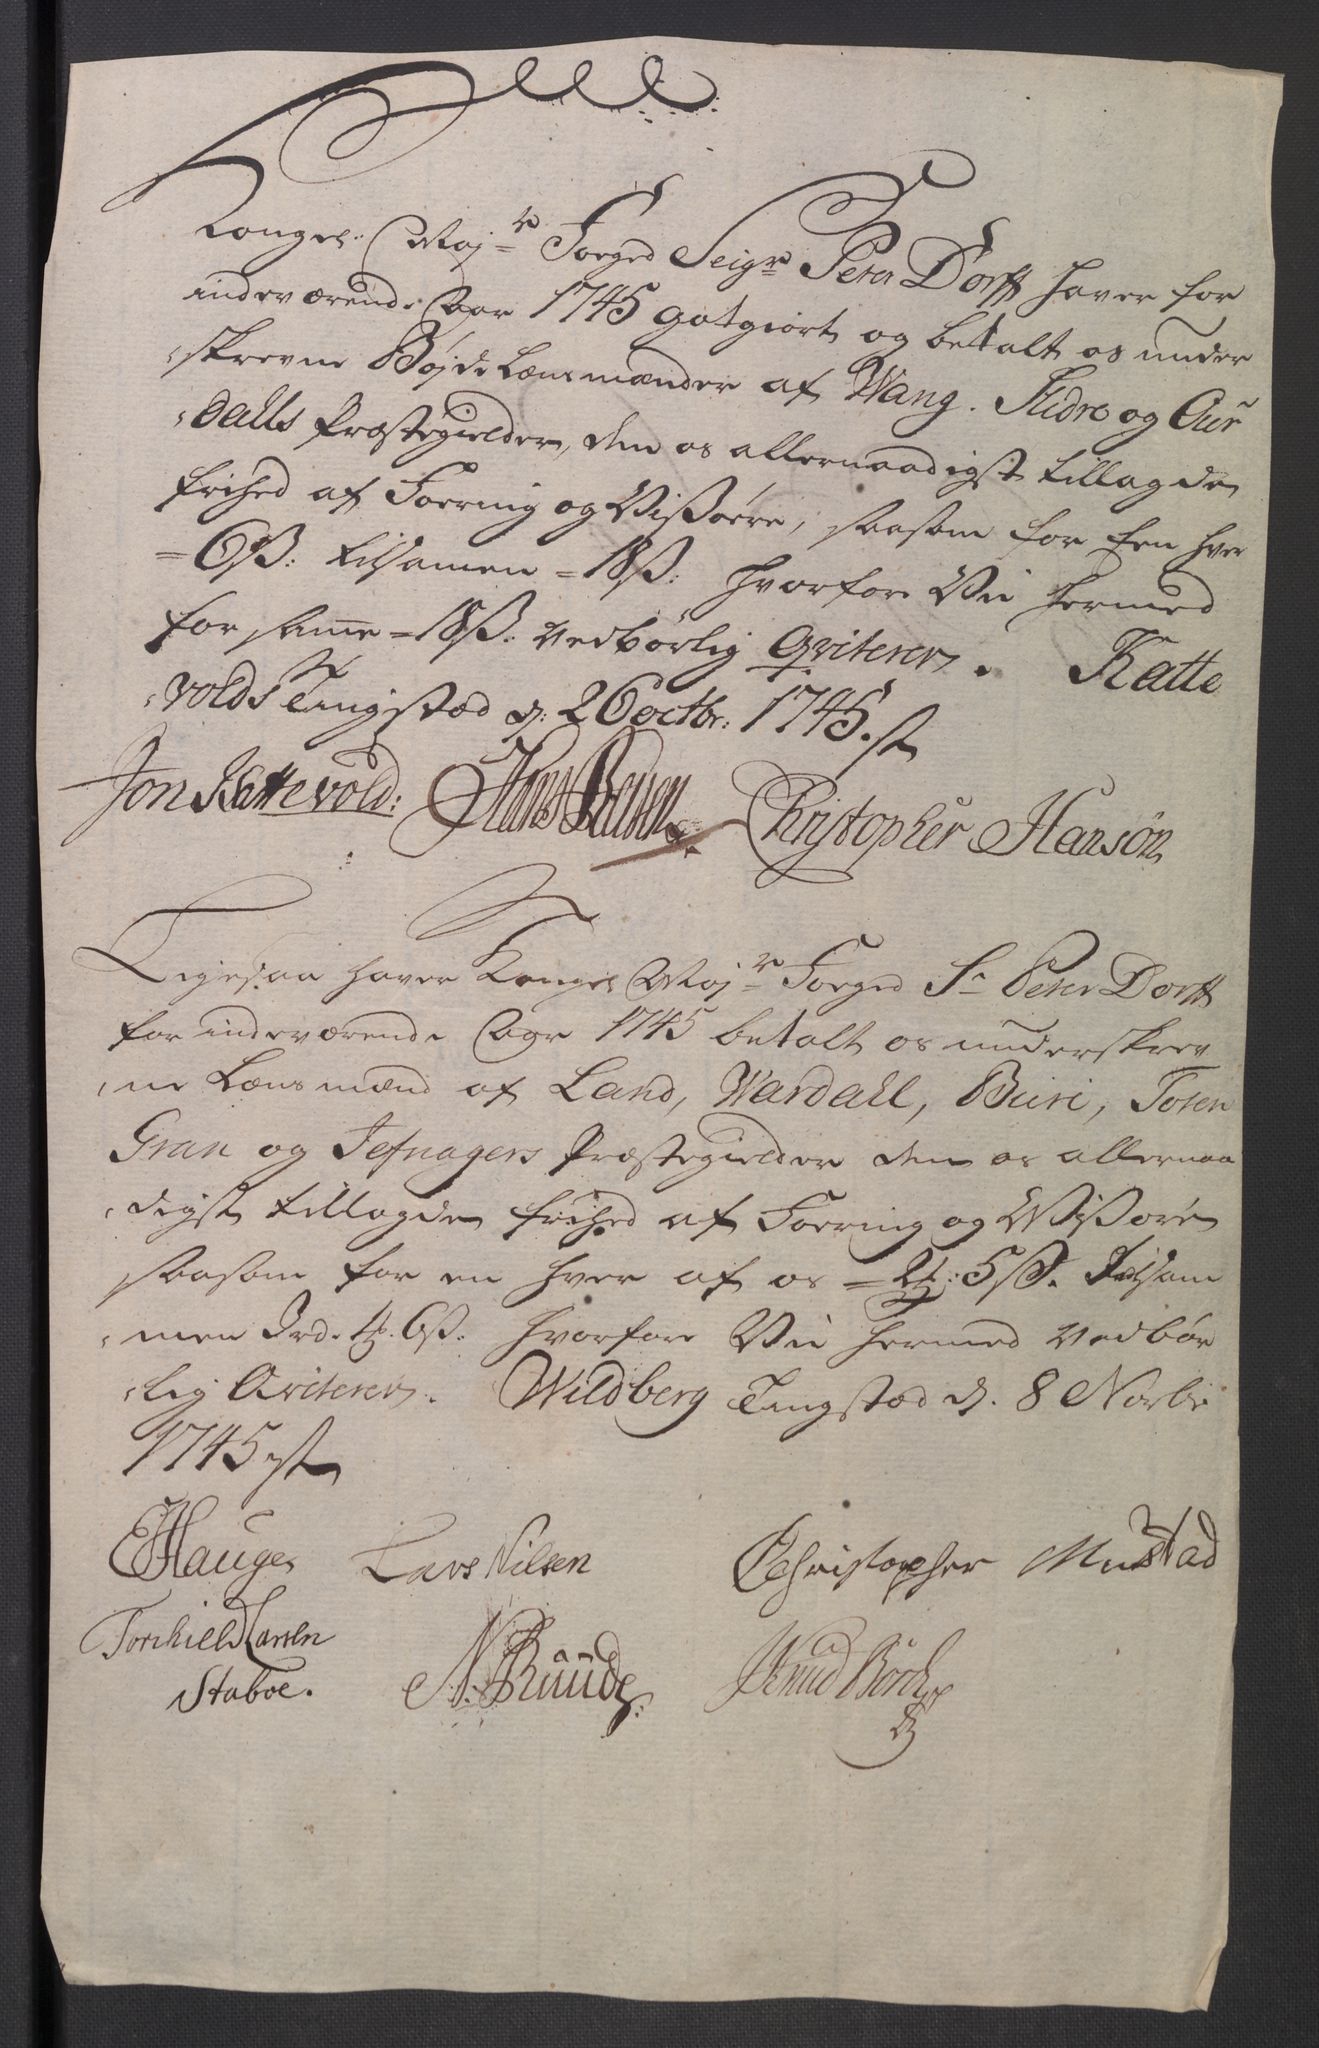 Konges: May:ts Foged Seigr Peter Dorff haver for
indeværende Aar 1745 gotgiort og betalt os under
skrevne Bøjde Lænsmænder af Wang. Slidre og Our
dalls Præstegielder, den os allernaadigst tillagde
frihed af Foering og Visøere, saasom for Een hver
= 6ß: tilsamen = 18ß: hvorfore Vii hermed
for samme = 18ß. vedbørlig Qviterer. Katte
volds Tingstæd d: 26 octbr: 1745. st
Jon Kattevold: Hans Christopher Hansøn
Ligesaa haver Konges May:ts Foged Sr Peter Dorff
for indeværende Aar 1745 betalt os underskrev
ne Lænsmænd af Land, Wardall, Biiri, Toten
Gran og Jefnagers Præstegielder den os allernaa
digst tillagde frihed af Foering og Visøre
saasom for en hver af os = 5ß. Tilsam
men 6ß. hvorfore Vii hermed vedbør
lig Qviterer. Wildberg Tingstæd d. 8 Novbr
1745 st
EHauger Lars Nilsen Christopher Mustad
Torchield Larsen
Staboe. N. Ruude Knud Børch